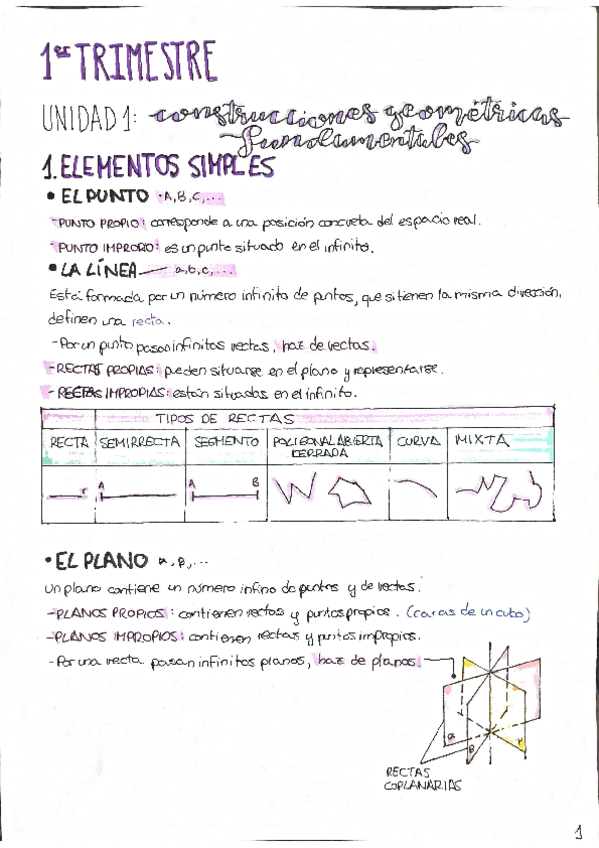 1er TRIMESTRE
UNIDAD 1: construcciones geométricas
fundamentales
1. ELEMENTOS SIMPLES
• EL PUNTO · A, B, C, ...
- PUNTO PROPIO: corresponde a una posición concreta del espacio real.
- PUNTO IMPROPIO: es un punto situado en el infinito.
• LA LÍNEA — a, b, c, ...
Está formada por un número infinito de puntos, que si tienen la misma dirección,
definen una recta.
- Por un punto pasan infinitas rectas, haz de rectas.
- RECTAS PROPIAS: pueden situarse en el plano y representarse.
- RECTAS IMPROPIAS: están situadas en el infinito.
TIPOS DE RECTAS
RECTA SEMIRRECTA SEGMENTO POLIGONAL ABIERTA CURVA MIXTA
CERRADA
r A A B
• EL PLANO α, β, ...
Un plano contiene un número infino de puntos y de rectas.
- PLANOS PROPIOS: contienen rectas y puntos propios. (caras de un cubo)
- PLANOS IMPROPIOS: contienen rectas y puntos impropios.
- Por una recta pasan infinitos planos, haz de planos.
α β γ
RECTAS
COPLANARIAS
1